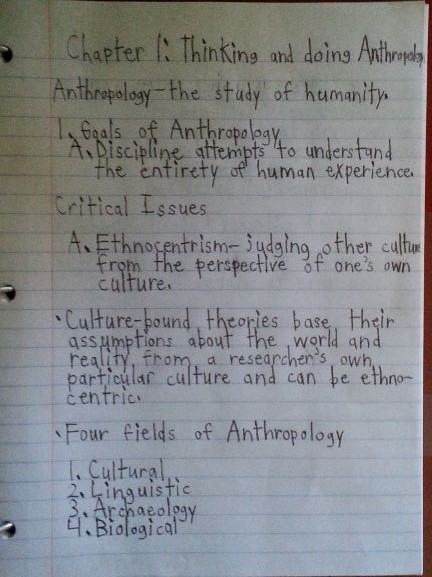 Chapter 1: Thinking and doing Anthropology
Anthropology-the study of humanity.
1. Goals of Anthropology
A. Discipline attempts to understand
the entirety of human experience.
Critical Issues
A. Ethnocentrism- judging other culture
from the perspective of one's own
culture.
·Culture-bound theories base their
assumptions about the world and
reality from a researcher's own
particular culture and can be ethno-
centric.
·Four fields of Anthropology
1. Cultural
2. Linguistic
3. Archaeology
4. Biological